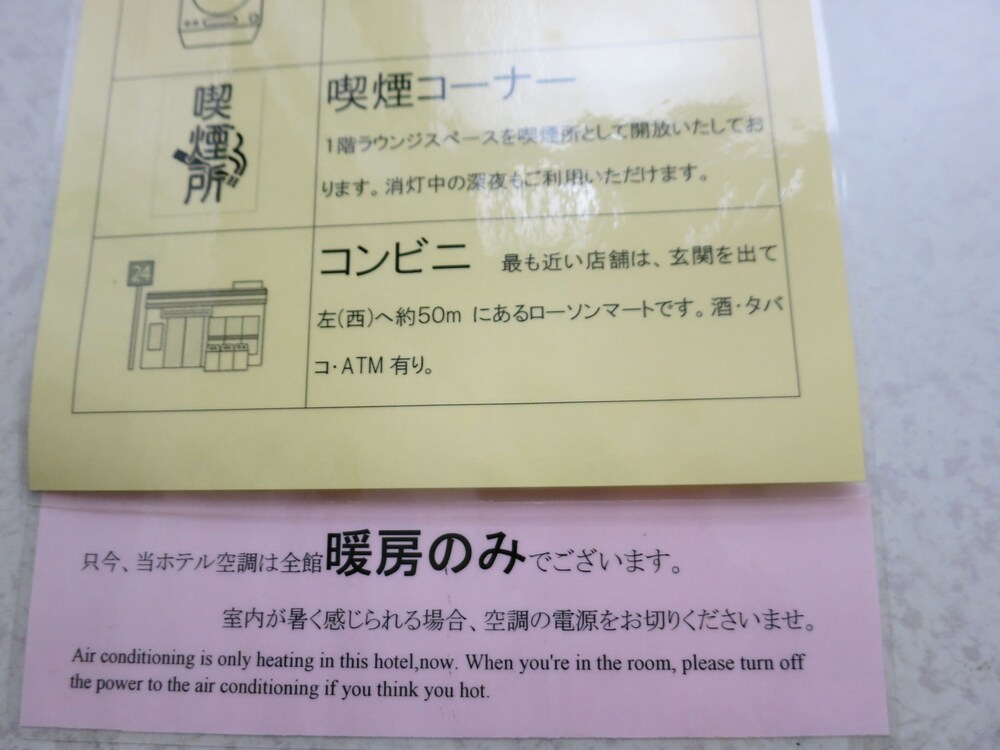 喫煙所
喫煙コーナー
1階ラウンジスペースを喫煙所として開放いたしてお
ります。消灯中の深夜もご利用いただけます。
24
コンビニ 最も近い店舗は、玄関を出て
左(西)へ約50m にあるローソンマートです。酒・タバ
コ・ATM 有り。
只今、当ホテル空調は全館暖房のみでございます。
室内が暑く感じられる場合、空調の電源をお切りくださいませ。
Air conditioning is only heating in this hotel,now. When you're in the room, please turn off
the power to the air conditioning if you think you hot.